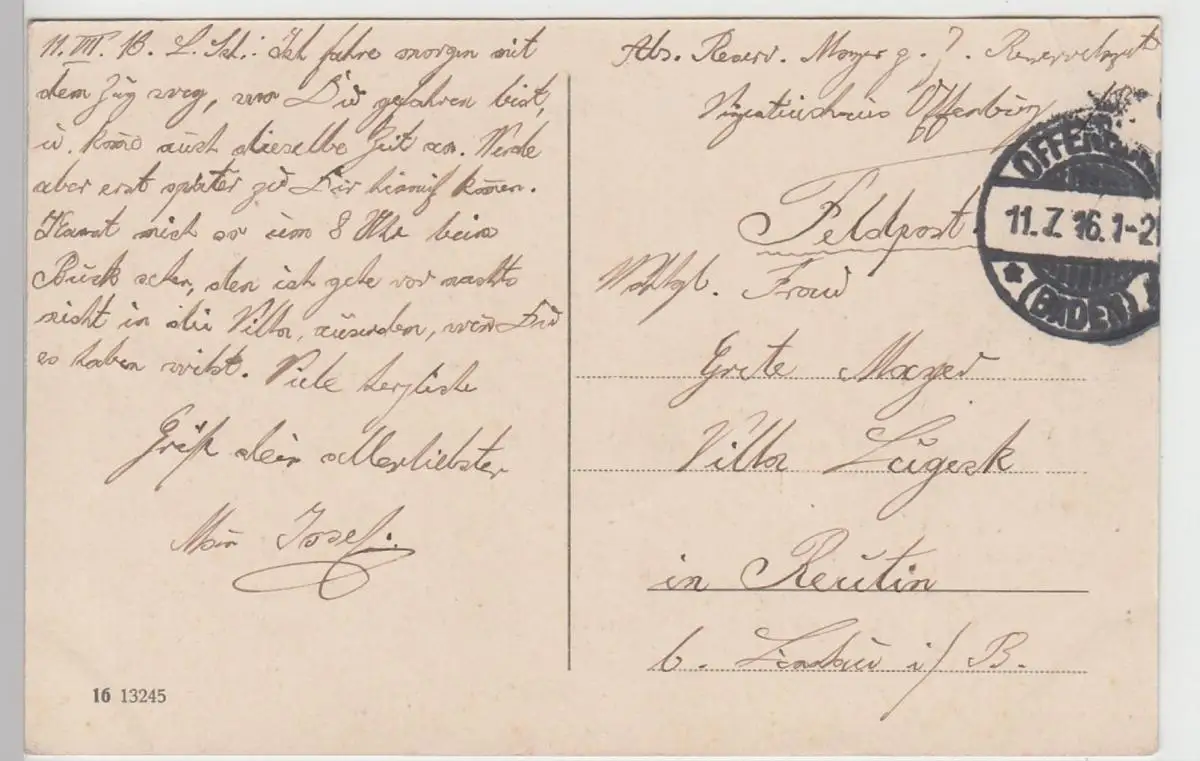 11. VII. 16. L. Sch.: Ich fahre morgen mit
dem Zug weg, wo Du gefahren bist,
u. kome auch dieselbe Zeit an. Werde
aber erst später zu Dir hinauf komen.
Kanst mich so um 8 Uhr beim
Buck sehen, den ich gehe vor nachts
nicht in die Villa, auserdem, wen Du
es haben wilst. Viele herzliche
Grüße dein allerliebster
Man Josef.
16 13245
Abs. Reserv. Mayer z. Z. Reservelazret
Offenburg
Feldpost.
Wohlgb. Frau
Grete Mayer
Villa
in Reutin
b. Lindau i/B.
OFFENBURG
11.7.16.1-2
(BADEN)